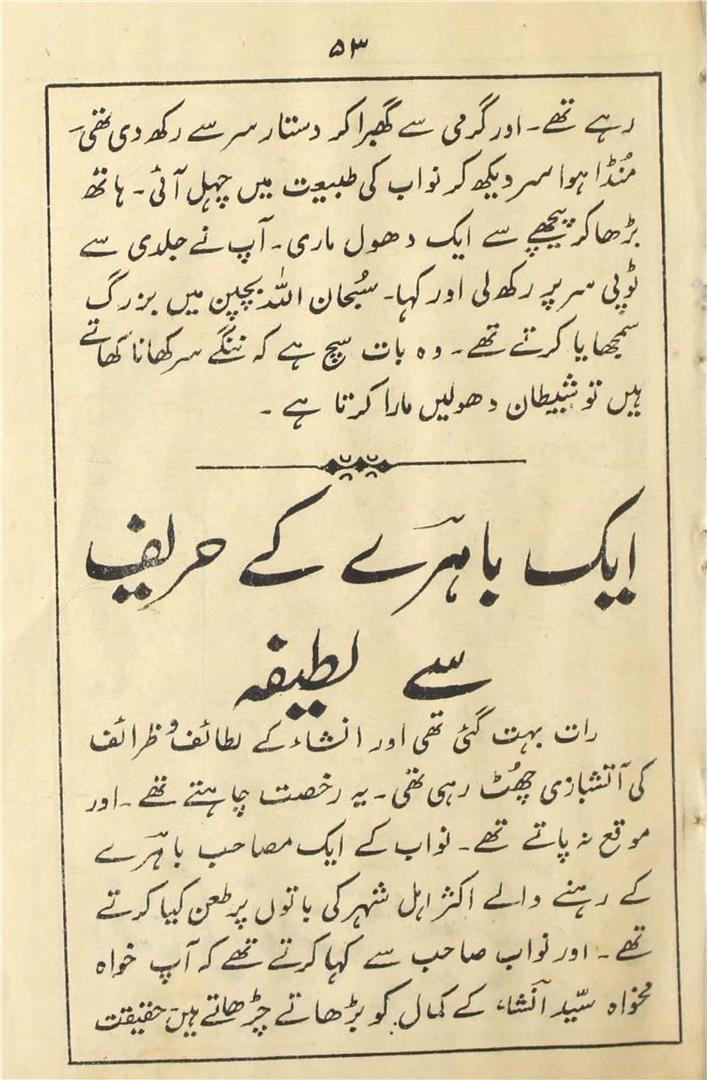 ۵۳
رہے تھے۔ اور گرمی سے گھبرا کر دستار سر سے رکھ دی تھی۔
مُنڈا ہوا سر دیکھ کر نواب کی طبیعت میں چہل آئی۔ ہاتھ
بڑھا کر پیچھے سے ایک دھول ماری۔ آپ نے جلدی سے
ٹوپی سر پر رکھ لی اور کہا۔ سُبحان اللہ بچپن میں بزرگ
سمجھایا کرتے تھے۔ وہ بات سچ ہے کہ ننگے سر کھانا کھاتے
ہیں تو شیطان دھولیں مارا کرتا ہے۔
ایک باہرے کے حریف
سے لطیفہ
رات بہت گئی تھی اور انشاء کے لطائف و ظرائف
کی آتشبازی چھُٹ رہی تھی۔ یہ رخصت چاہتے تھے۔ اور
موقع نہ پاتے تھے۔ نواب کے ایک مصاحب باہرے
کے رہنے والے اکثر اہل شہر کی باتوں پر طعن کیا کرتے
تھے۔ اور نواب صاحب سے کہا کرتے تھے کہ آپ خواہ
مخواہ سیّد انشاء کے کمال کو بڑھاتے چڑھاتے ہیں حقیقت